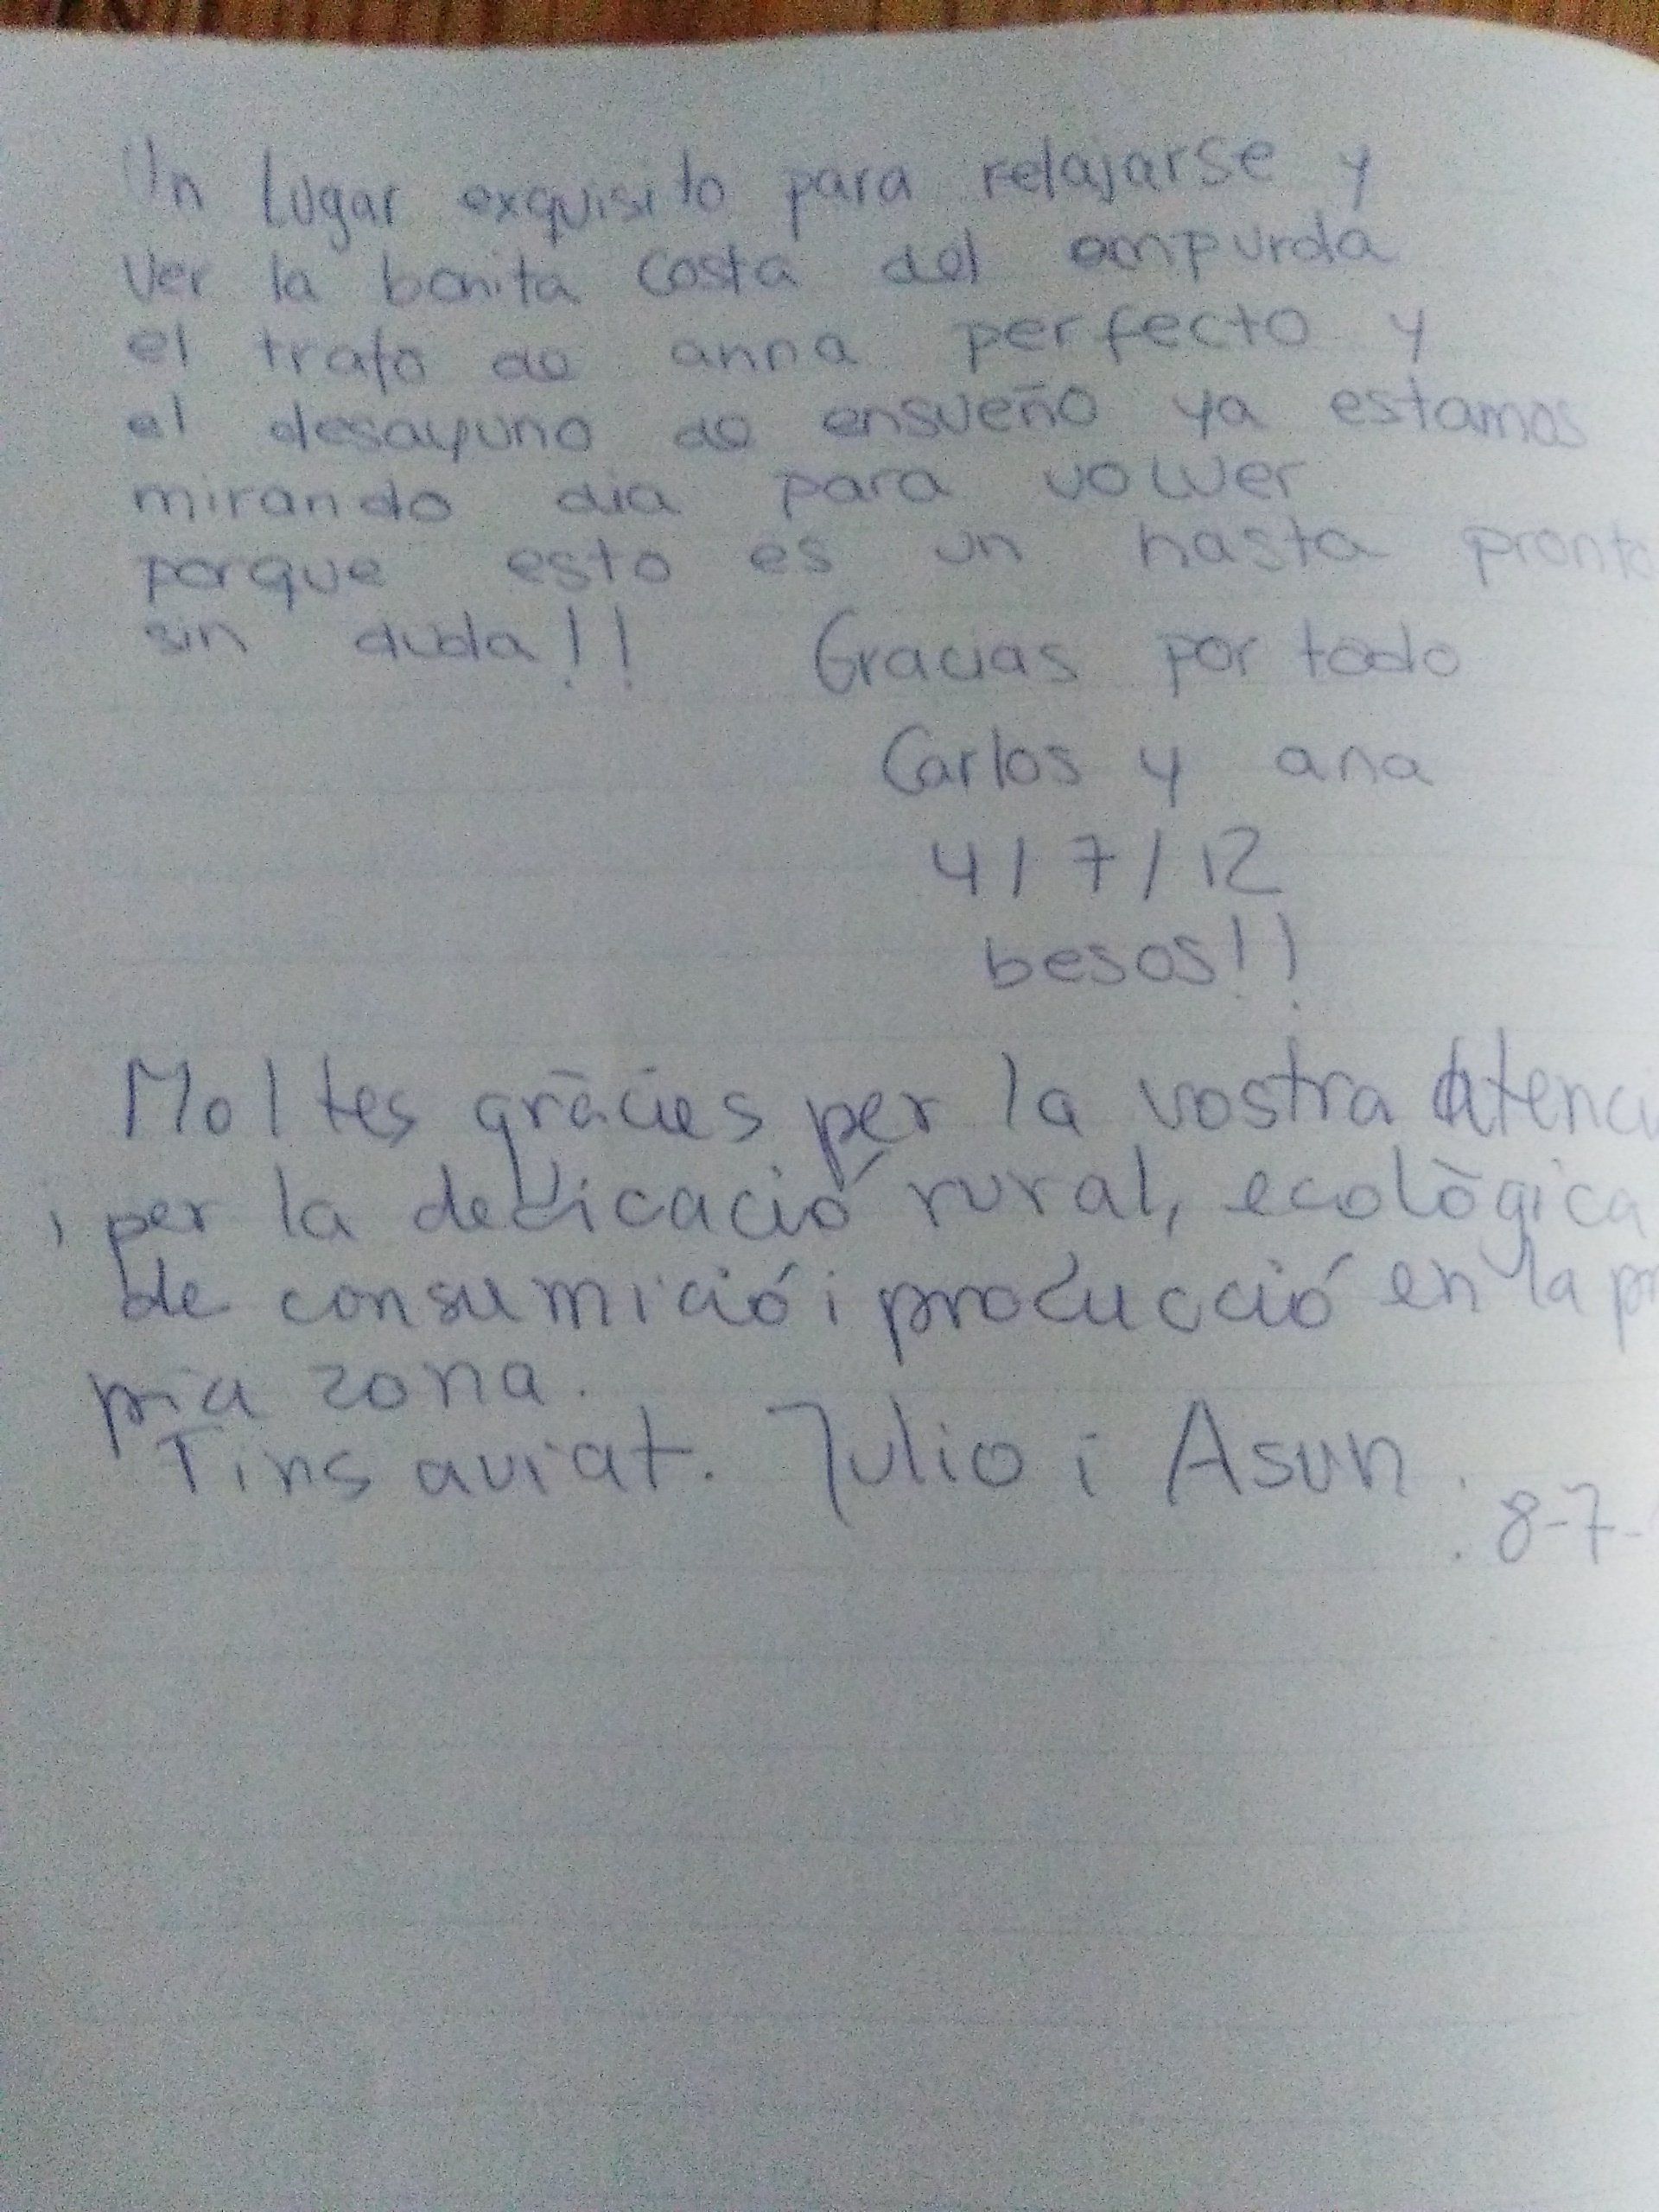 Un Lugar exquisito para relajarse y
ver la bonita costa del ampurda
el trato de anna perfecto y
el desayuno de ensueño ya estamos
mirando dia para volver
porque esto es un hasta pronto
sin duda!! Gracias por todo
Carlos y ana
4/7/12
besos!!
Moltes gràcies per la vostra atenci
i per la dedicació rural, ecològica
de consumició i producció en la pr
pia zona.
Tins aviat. Julio i Asun.
8-7-